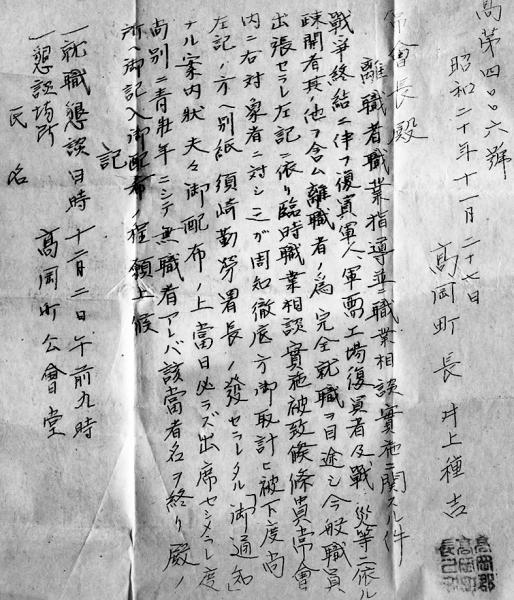 高第四〇六號
昭和二十年十一月二十七日
高岡町長 井上種吉
常會長殿
離職者職業指導並ニ職業相談實施ニ関スル件
戰爭終結ニ伴フ復員軍人、軍需工場復員者及戰災等ニ依ル
疎開者其ノ他ヲ含ム離職者ノ為完全就職ヲ目途シ今般職員
出張セラレ左記ニ依リ臨時職業相談實施被致候條貴常會
内ニ右対象者ニ対シ之ガ周知徹底方御取計ヒ被下度尚
左記ノ方ヘ別紙須崎勤勞署長ノ發セラレタル「御通知」
ナル案内狀夫々御配布ノ上當日必ラズ出席セシメラレ度
尚別ニ青壯年ニシテ無職者アレバ該當者名ヲ終リ殿ノ
所ヘ御記入御配布ノ程願上候
記
一就職懇談日時 十二月二日午前九時
一懇談場所 高岡町公會堂
氏名
高岡郡
高岡町
長之印